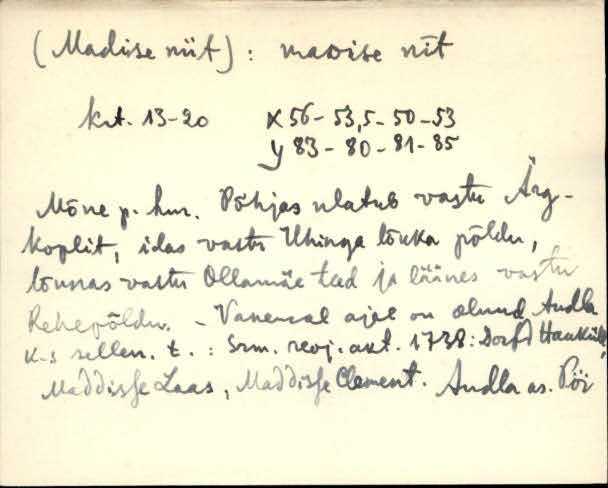 (Madise niit): maðise nīt
krt. 13-20 x 56- 53,5- 50-53
y 83- 80- 81- 85
Mõne p. hm. Põhjas ulatub vastu Ärg-
koplit, idas vastu Uhinga louka põldu,
lõunas vastu Ollamäe teed ja läänes vastu
Rehepõldu. - Vanemal ajal on olnud Andla
k-s sellen. t.: Srm. revj. akt. 1738: Dorf Hanküll,
Maddisse Laas, Maddisse Clement. Andla as. Pöi